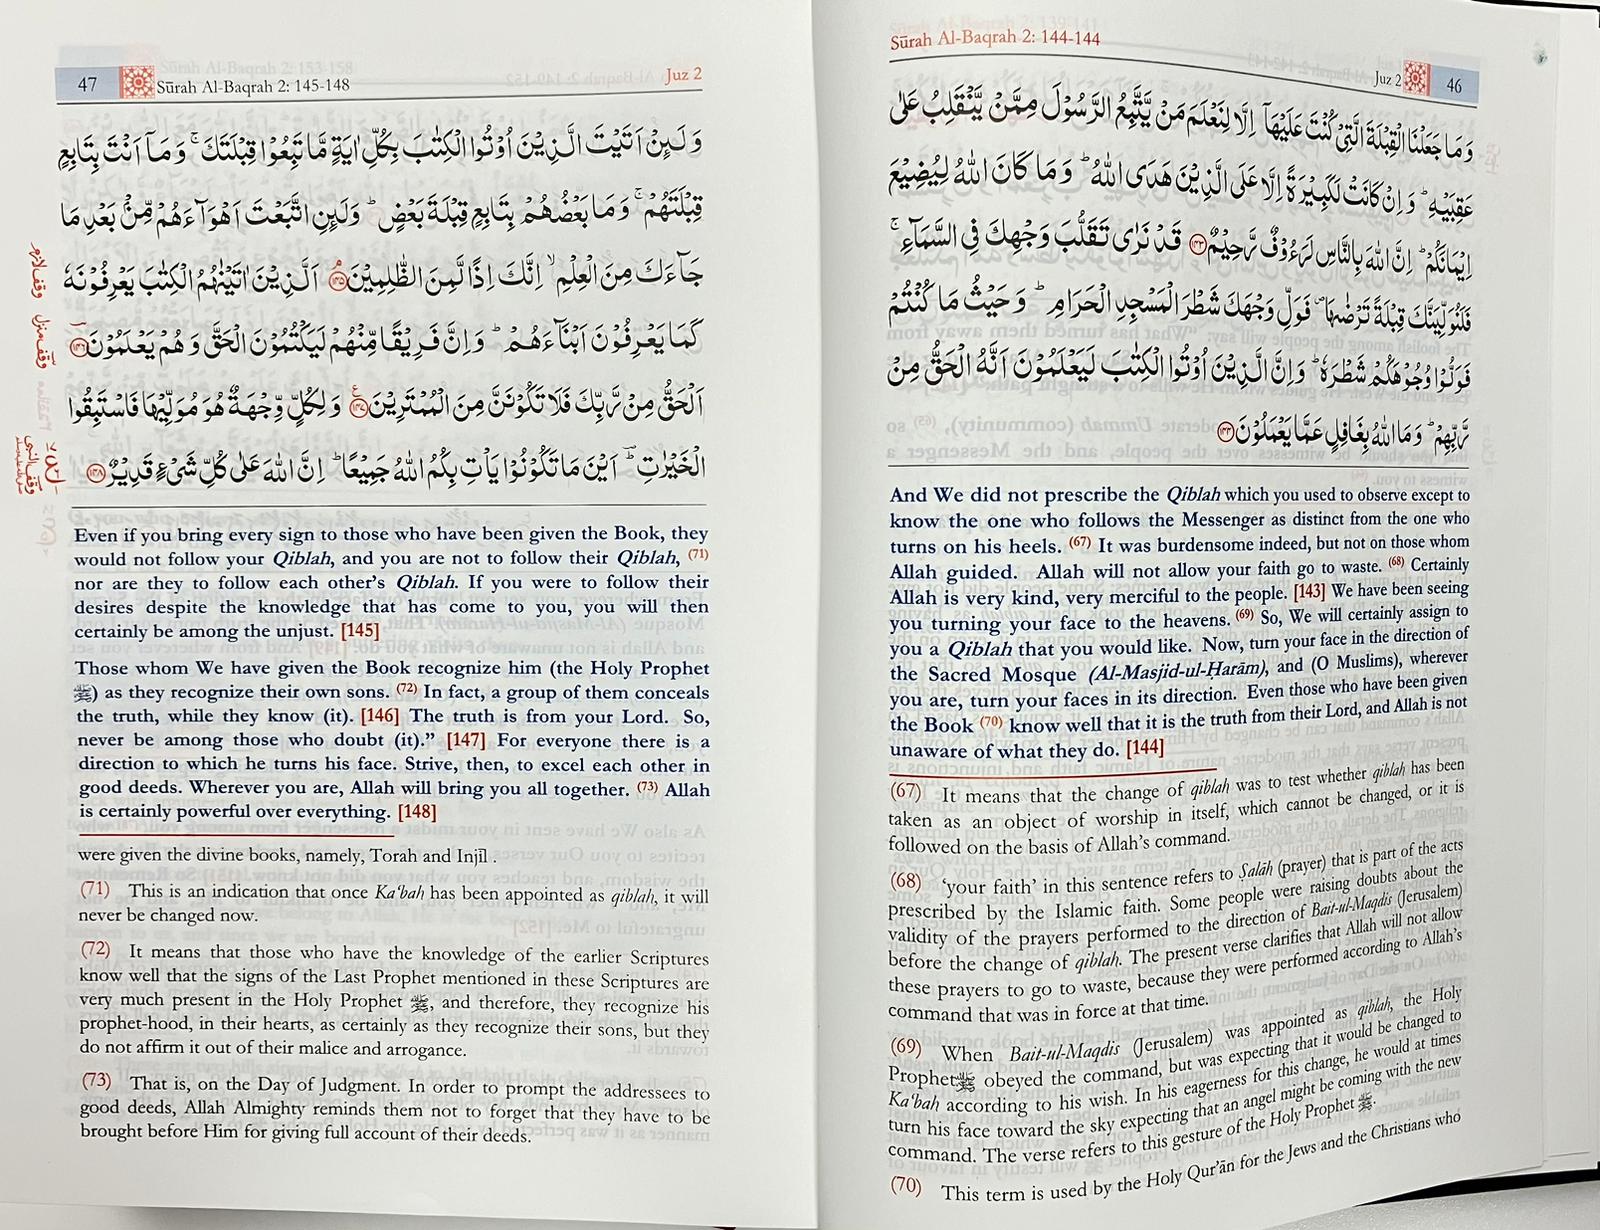 Sūrah Al-Baqrah 2: 144-144
Juz 2
46
وَمَا جَعَلْنَا الْقِبْلَةَ الَّتِيْ كُنْتَ عَلَيْهَاۤ اِلَّا لِنَعْلَمَ مَنْ يَّتَّبِعُ الرَّسُوْلَ مِمَّنْ يَّنْقَلِبُ عَلٰى
عَقِبَيْهِ ؕ وَ اِنْ كَانَتْ لَكَبِيْرَةً اِلَّا عَلَى الَّذِيْنَ هَدَى اللّٰهُ ؕ وَمَا كَانَ اللّٰهُ لِيُضِيْعَ
اِيْمَانَكُمْ ؕ اِنَّ اللّٰهَ بِالنَّاسِ لَرَءُوْفٌ رَّحِيْمٌ ﴿۱۴۳﴾ قَدْ نَرٰى تَقَلُّبَ وَجْهِكَ فِي السَّمَآءِ ۚ
فَلَنُوَلِّيَنَّكَ قِبْلَةً تَرْضٰهَا ۪ فَوَلِّ وَجْهَكَ شَطْرَ الْمَسْجِدِ الْحَرَامِ ؕ وَحَيْثُ مَا كُنْتُمْ
فَوَلُّوْا وُجُوْهَكُمْ شَطْرَهٗ ؕ وَاِنَّ الَّذِيْنَ اُوْتُوا الْكِتٰبَ لَيَعْلَمُوْنَ اَنَّهُ الْحَقُّ مِنْ
رَّبِّهِمْ ؕ وَمَا اللّٰهُ بِغَافِلٍ عَمَّا يَعْمَلُوْنَ ﴿۱۴۴﴾
And We did not prescribe the Qiblah which you used to observe except to
know the one who follows the Messenger as distinct from the one who
turns on his heels. (67) It was burdensome indeed, but not on those whom
Allah guided. Allah will not allow your faith go to waste. (68) Certainly
Allah is very kind, very merciful to the people. [143] We have been seeing
you turning your face to the heavens. (69) So, We will certainly assign to
you a Qiblah that you would like. Now, turn your face in the direction of
the Sacred Mosque (Al-Masjid-ul-Ḥarām), and (O Muslims), wherever
you are, turn your faces in its direction. Even those who have been given
the Book (70) know well that it is the truth from their Lord, and Allah is not
unaware of what they do. [144]
(67) It means that the change of qiblah was to test whether qiblah has been
taken as an object of worship in itself, which cannot be changed, or it is
followed on the basis of Allah's command.
(68) 'your faith' in this sentence refers to Ṣalāh (prayer) that is part of the acts
prescribed by the Islamic faith. Some people were raising doubts about the
validity of the prayers performed to the direction of Bait-ul-Maqdis (Jerusalem)
before the change of qiblah. The present verse clarifies that Allah will not allow
these prayers to go to waste, because they were performed according to Allah's
command that was in force at that time.
(69) When Bait-ul-Maqdis (Jerusalem) was appointed as qiblah, the Holy
Prophet ﷺ obeyed the command, but was expecting that it would be changed to
Ka'bah according to his wish. In his eagerness for this change, he would at times
turn his face toward the sky expecting that an angel might be coming with the new
command. The verse refers to this gesture of the Holy Prophet ﷺ.
(70) This term is used by the Holy Qur'ān for the Jews and the Christians who
47
Sūrah Al-Baqrah 2: 145-148
Juz 2
وَلَئِنْ اَتَيْتَ الَّذِيْنَ اُوْتُوا الْكِتٰبَ بِكُلِّ اٰيَةٍ مَّا تَبِعُوْا قِبْلَتَكَ ۚ وَمَاۤ اَنْتَ بِتَابِعٍ
قِبْلَتَهُمْ ۚ وَمَا بَعْضُهُمْ بِتَابِعٍ قِبْلَةَ بَعْضٍ ؕ وَلَئِنِ اتَّبَعْتَ اَهْوَآءَهُمْ مِّنْۢ بَعْدِ مَا
جَآءَكَ مِنَ الْعِلْمِ ۙ اِنَّكَ اِذًا لَّمِنَ الظّٰلِمِيْنَ ﴿۱۴۵﴾ۘ اَلَّذِيْنَ اٰتَيْنٰهُمُ الْكِتٰبَ يَعْرِفُوْنَهٗ
كَمَا يَعْرِفُوْنَ اَبْنَآءَهُمْ ؕ وَاِنَّ فَرِيْقًا مِّنْهُمْ لَيَكْتُمُوْنَ الْحَقَّ وَهُمْ يَعْلَمُوْنَ ﴿۱۴۶﴾
اَلْحَقُّ مِنْ رَّبِّكَ فَلَا تَكُوْنَنَّ مِنَ الْمُمْتَرِيْنَ ﴿۱۴۷﴾ وَ لِكُلٍّ وِّجْهَةٌ هُوَ مُوَلِّيْهَا فَاسْتَبِقُوا
الْخَيْرٰتِ ؕ اَيْنَ مَا تَكُوْنُوْا يَاْتِ بِكُمُ اللّٰهُ جَمِيْعًا ؕ اِنَّ اللّٰهَ عَلٰى كُلِّ شَيْءٍ قَدِيْرٌ ﴿۱۴۸﴾
وقف لازم
وقف منزل
وقف النبى
Even if you bring every sign to those who have been given the Book, they
would not follow your Qiblah, and you are not to follow their Qiblah, (71)
nor are they to follow each other's Qiblah. If you were to follow their
desires despite the knowledge that has come to you, you will then
certainly be among the unjust. [145]
Those whom We have given the Book recognize him (the Holy Prophet
ﷺ) as they recognize their own sons. (72) In fact, a group of them conceals
the truth, while they know (it). [146] The truth is from your Lord. So,
never be among those who doubt (it)." [147] For everyone there is a
direction to which he turns his face. Strive, then, to excel each other in
good deeds. Wherever you are, Allah will bring you all together. (73) Allah
is certainly powerful over everything. [148]
were given the divine books, namely, Torah and Injīl .
(71) This is an indication that once Ka'bah has been appointed as qiblah, it will
never be changed now.
(72) It means that those who have the knowledge of the earlier Scriptures
know well that the signs of the Last Prophet mentioned in these Scriptures are
very much present in the Holy Prophet ﷺ, and therefore, they recognize his
prophet-hood, in their hearts, as certainly as they recognize their sons, but they
do not affirm it out of their malice and arrogance.
(73) That is, on the Day of Judgment. In order to prompt the addressees to
good deeds, Allah Almighty reminds them not to forget that they have to be
brought before Him for giving full account of their deeds.